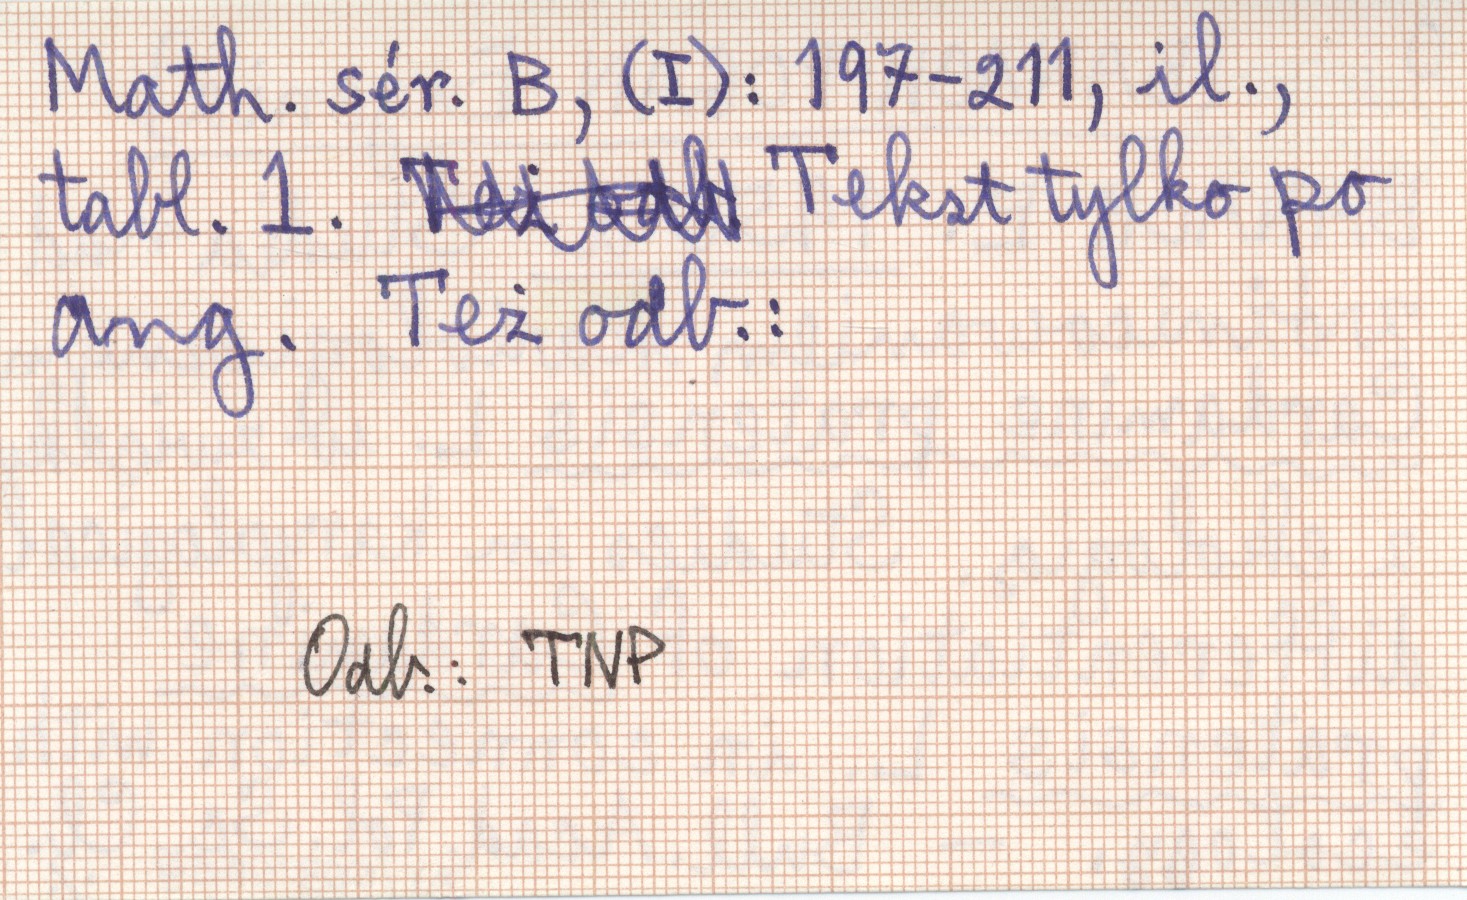 Math. sér. B, (I): 197-211, il.,
tabl. 1. Tekst tylko po
ang. Też odb.:
Odb.: TNP